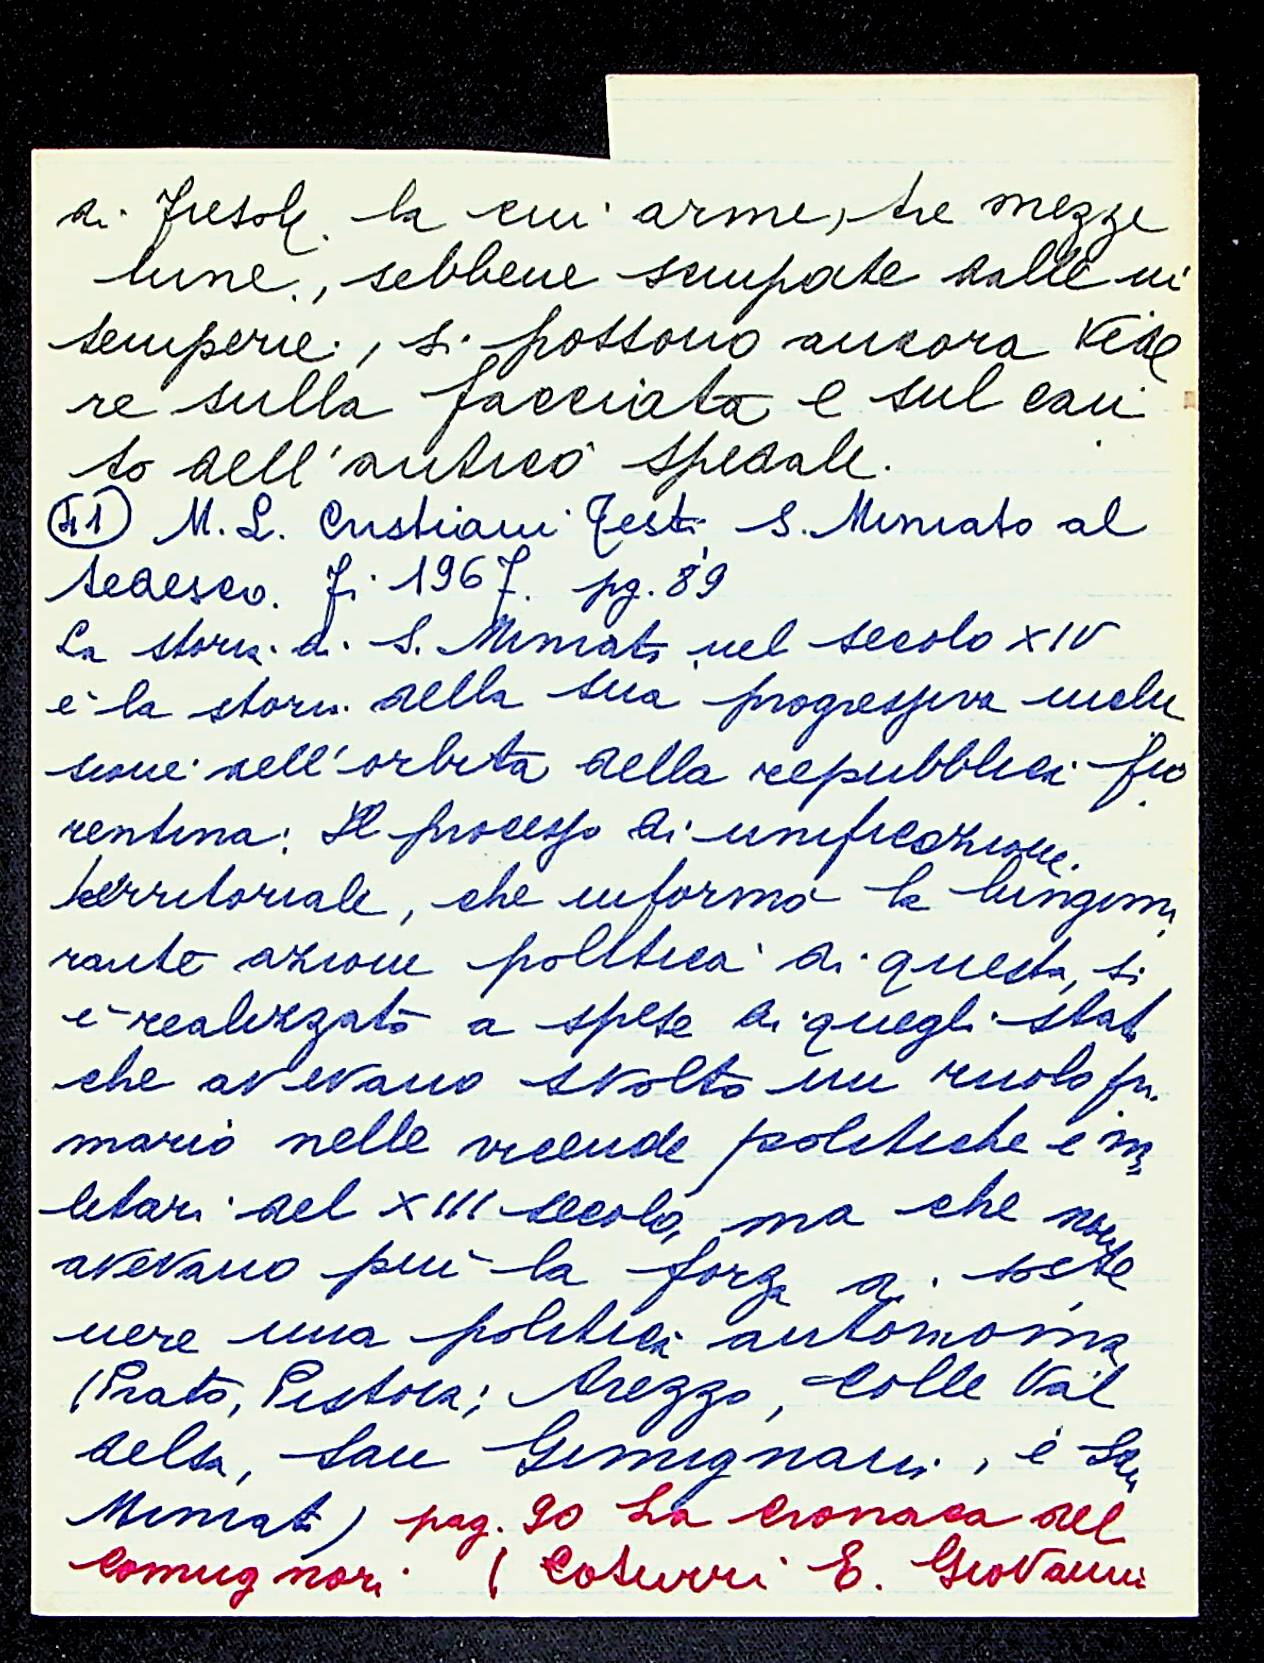 di Fiesole. la cui arme, tre mezze
lune., sebbene sciupate dalle in
temperie, si possono ancora vede
re sulla facciata e sul can
to dell'antico spedale.
(41) M. L. Cristiani Testi, S. Miniato al
tedesco. Fi 1967. pg. 89
La storia di S. Miniato nel secolo XIV
è la storia della sua progressiva inclu
sione nell'orbita della repubblica fio
rentina: Il processo di unificazione
territoriale, che informò la lungimi
rante azione politica di questa, si
è realizzato a spese di quegli stati
che avevano svolto un ruolo pri
mario nelle vicende politiche e mi
litari del XIII secolo, ma che non
avevano più la forza di soste
nere una politica autonoma
(Prato, Pistoia; Arezzo, Colle Val
delsa, San Gimignano, e San
Miniato) pag. 90 La cronaca del
Comugnori ( Coturri E. Giovanni